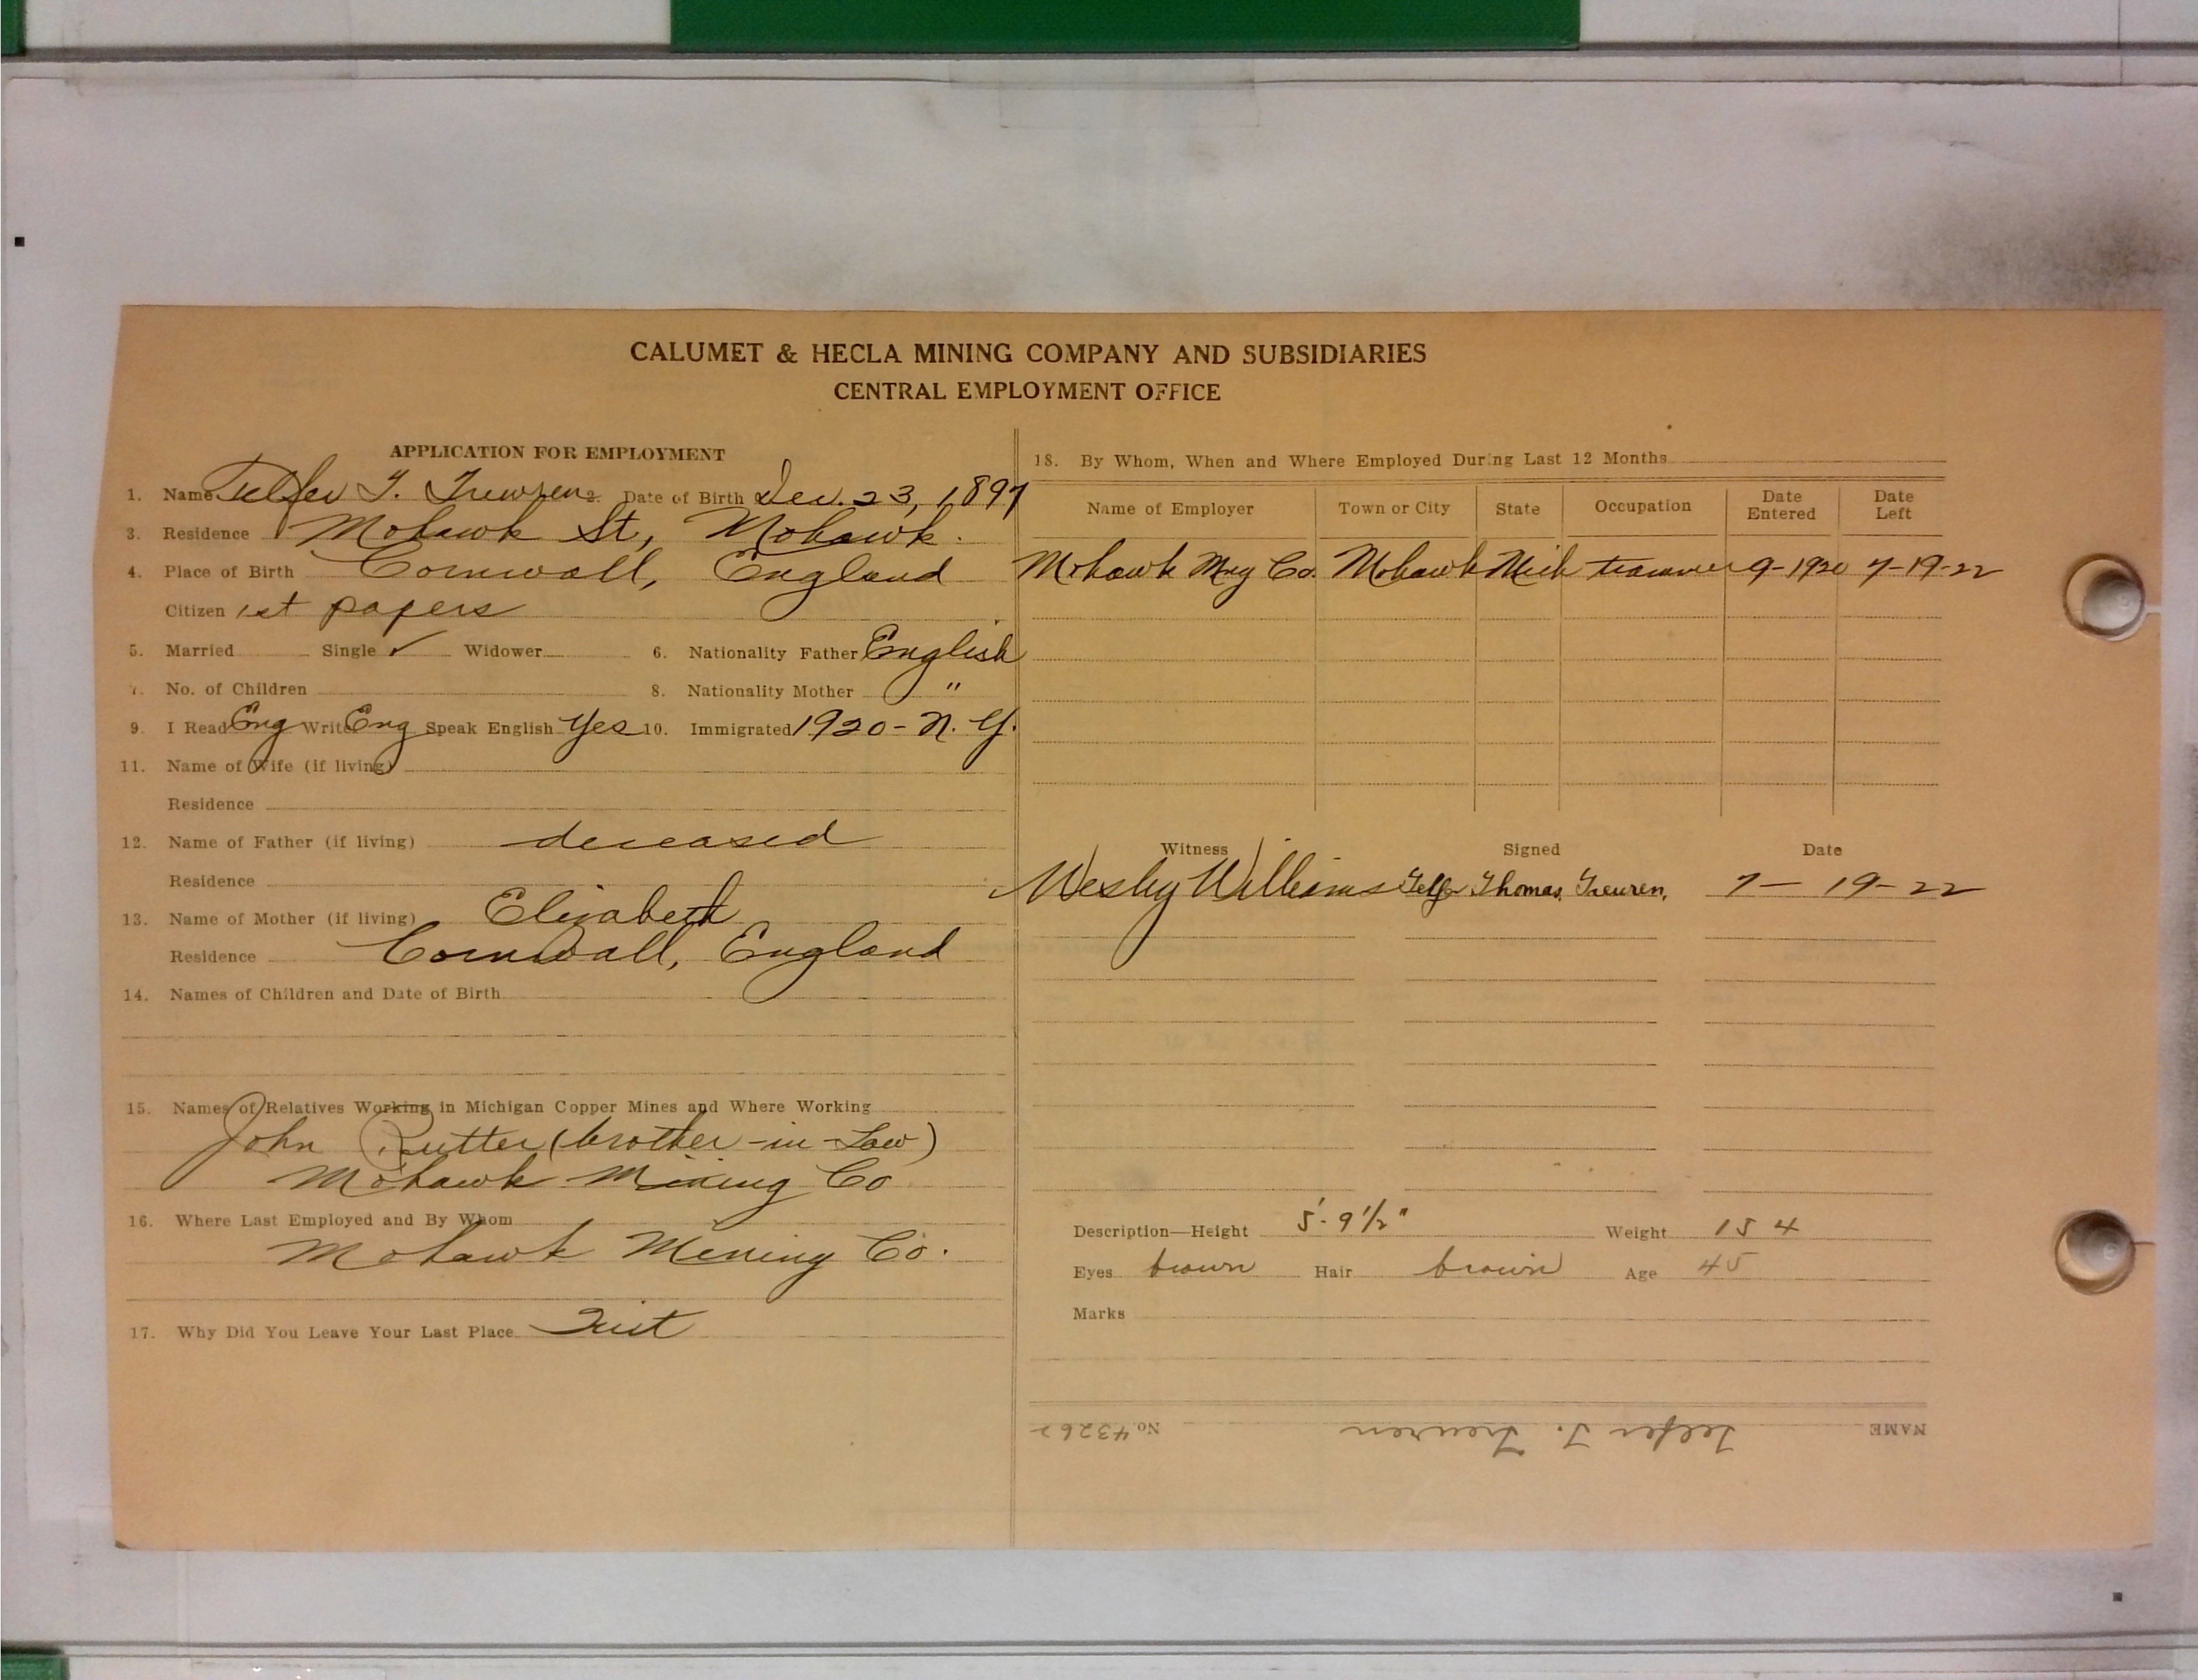 CALUMET & HECLA MINING COMPANY AND SUBSIDIARIES
CENTRAL EMPLOYMENT OFFICE
APPLICATION FOR EMPLOYMENT
1. Name Telfer T. Trewren 2. Date of Birth Dec. 23, 1897
3. Residence Mohawk St, Mohawk.
4. Place of Birth Cornwall, England
Citizen 1st papers
5. Married Single ✓ Widower 6. Nationality Father English
7. No. of Children 8. Nationality Mother "
9. I Read Eng Write Eng Speak English Yes 10. Immigrated 1920 - N. Y.
11. Name of Wife (if living)
Residence
12. Name of Father (if living) deceased
Residence
13. Name of Mother (if living) Elizabeth
Residence Cornwall, England
14. Names of Children and Date of Birth
15. Names of Relatives Working in Michigan Copper Mines and Where Working
John Rutter (brother-in-Law)
Mohawk Mining Co
16. Where Last Employed and By Whom
Mohawk Mining Co.
17. Why Did You Leave Your Last Place Quit
18. By Whom, When and Where Employed During Last 12 Months
Name of Employer Town or City State Occupation Date Entered Date Left
Mohawk Mng Co. Mohawk Mich trammer 9-1920 7-19-22
Witness Signed Date
Wesley Williams Telfer Thomas Treuren, 7-19-22
Description—Height 5'-9 1/2" Weight 154
Eyes brown Hair brown Age 45
Marks
NAME Telfer T. Trewren No. 43262